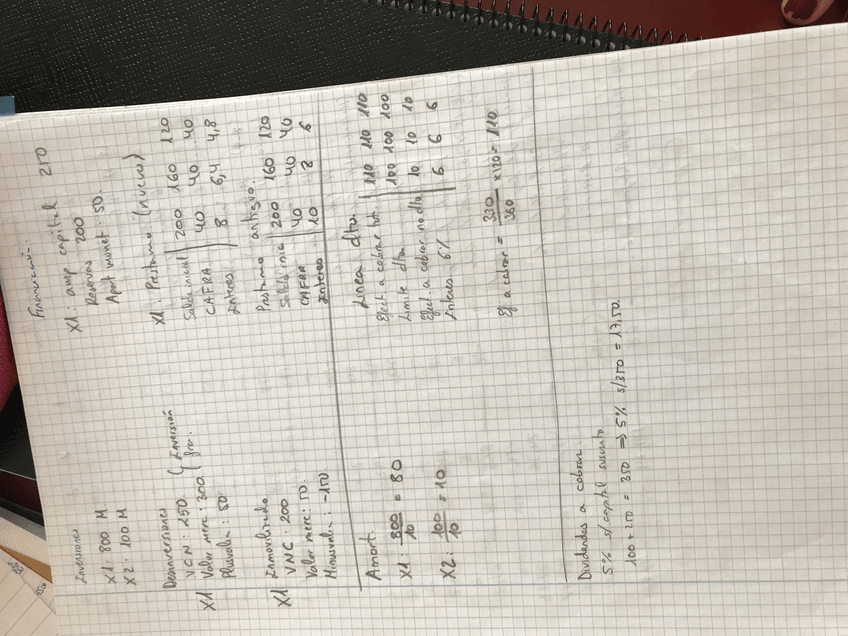 Inversiones
X1: 800 M
X2: 100 M
Desinversiones
VCN: 250. Inversión
X1 Valor merc: 300 fra.
Plusvalía: 50
Inmovilizado
X1 VNC: 200
Valor merc: 50.
Minusvalía: -150
Amort.
X1: 800/10 = 80
X2: 100/10 = 10
Dividendos a cobrar
5% s/capital suscrito
100 + 250 = 350 => 5% s/350 = 17,50.
Financiación.
X1: amp capital 250
Reservas 200
Aport monet: 50.
X1: Prestamo (nuevo)
Saldo inicial 200 160 120
CAFRA 40 40 40
Interes 8 6,4 4,8
Prestamo antiguo.
Saldo inic 200 160 120
CAFRA 40 40 40
Interes 10 8 6
Linea dto.
Efect a cobrar tot. 110 110 110
Limite dto. 100 100 100
Efect a cobrar no dto 10 10 10
Interes 6% 6 6 6
Ef a cobrar = 330/360 x120 = 110